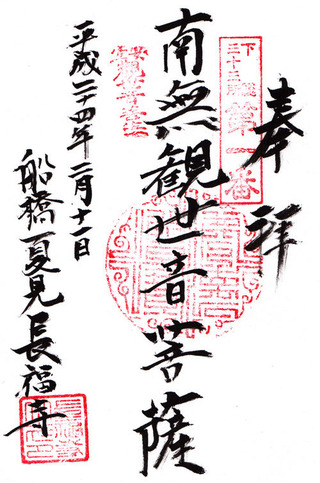 奉拝
下
三十三所
第一番
南無観世音菩薩
平成二十四年二月十一日
船橋夏見長福寺